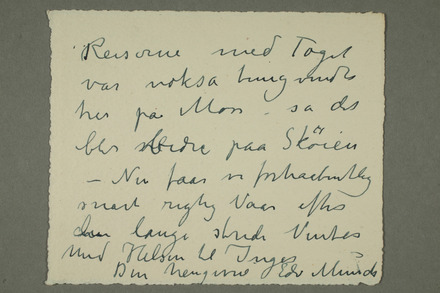 Reiserne med Toget
var voksa tungvindte
her på Moss – så det
blir bedre paa Sköien
– Nu faar vi forhaabentlig
snart rigtig Vaar efter
den lange stride Vinter
Med Hilsen til Inger
Din hengivne Edv Munch